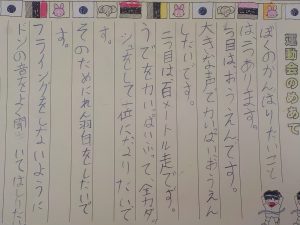 運動会のめあて
ぼくのがんばりたいこと
は二つあります。
一つ目はおうえんです。
大きな声で力いぱいおうえん
したいです。
二つ目は百メートル走です。
うでを力いぱいふって、全力ダッ
シュをして一位になりたいで
す。
そのためにれん習をしたいで
す。
フライングをしないように
ドンの音をよく聞いてはしりた